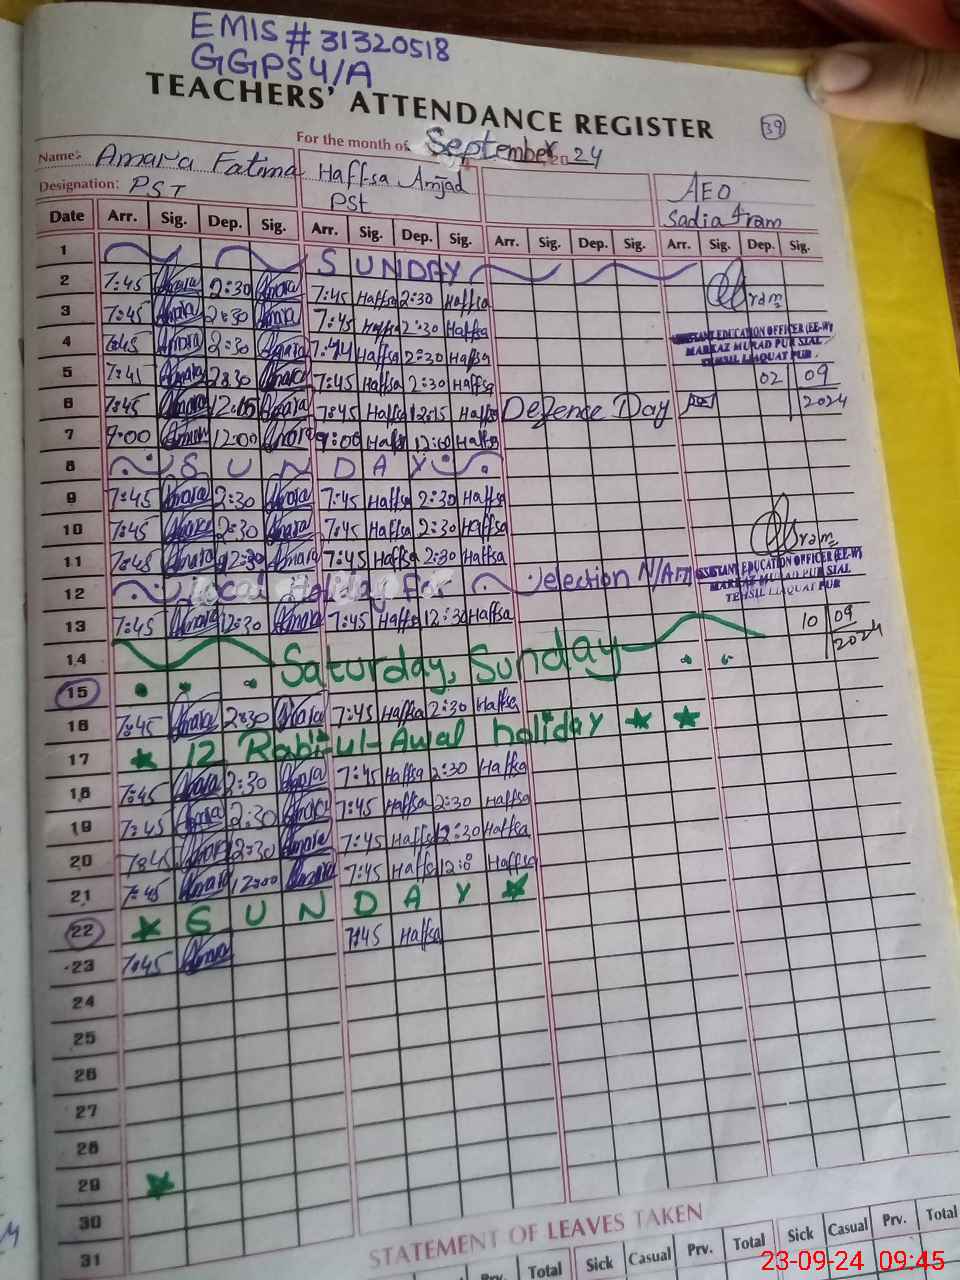 EMIS # 31320518
GGPS 4/A
TEACHERS' ATTENDANCE REGISTER
39
For the month of September 20 24
Name: Amara Fatima Haffsa Amjad AEO
Designation: PST PST Sadia Iram
Date Arr. Sig. Dep. Sig. Arr. Sig. Dep. Sig. Arr. Sig. Dep. Sig. Arr. Sig. Dep. Sig.
1 SUNDAY
2 7:45 Amara 2:30 Amara 7:45 Haffsa 2:30 Haffsa Iram
3 7:45 Amara 2:30 Amara 7:45 Haffsa 2:30 Haffsa
ASSISTANT EDUCATION OFFICER (EE-W)
MARKAZ MURAD PUR SIAL
TEHSIL LIAQUAT PUR
4 Amara 2:30 Amara Haffsa 2:30 Haffsa
5 7:45 Amara 2:30 Amara 7:45 Haffsa 2:30 Haffsa 02 09 2024
6 7:45 Amara 12:15 Amara 7:45 Haffsa 12:15 Haffsa Defence Day
7 9:00 Amara 12:00 Amara 9:00 Haffsa 12:00 Haffsa
8 SUNDAY
9 7:45 Amara 2:30 Amara 7:45 Haffsa 2:30 Haffsa
10 7:45 Amara 2:30 Amara 7:45 Haffsa 2:30 Haffsa Iram
11 7:45 Amara 2:30 Amara 7:45 Haffsa 2:30 Haffsa
ASSISTANT EDUCATION OFFICER (EE-W)
MARKAZ MURAD PUR SIAL
TEHSIL LIAQUAT PUR
12 Local Holiday For election N/A
13 7:45 Amara 12:30 Amara 7:45 Haffsa 12:30 Haffsa 10 09 2024
14 Saturday, Sunday
15
16 7:45 Amara 2:30 Amara 7:45 Haffsa 2:30 Haffsa
17 12 Rabi-ul-Awal holiday
18 7:45 Amara 2:30 Amara 7:45 Haffsa 2:30 Haffsa
19 7:45 Amara 2:30 Amara 7:45 Haffsa 2:30 Haffsa
20 7:45 Amara 12:30 Amara 7:45 Haffsa 12:30 Haffsa
21 7:45 Amara 12:00 Amara 7:45 Haffsa Haffsa
22 SUNDAY
23 7:45 Amara 7:45 Haffsa
24
25
26
27
28
29
30
31
STATEMENT OF LEAVES TAKEN
Prv. Total Sick Casual Prv. Total Sick Casual Prv. Total
23-09-24 09:45